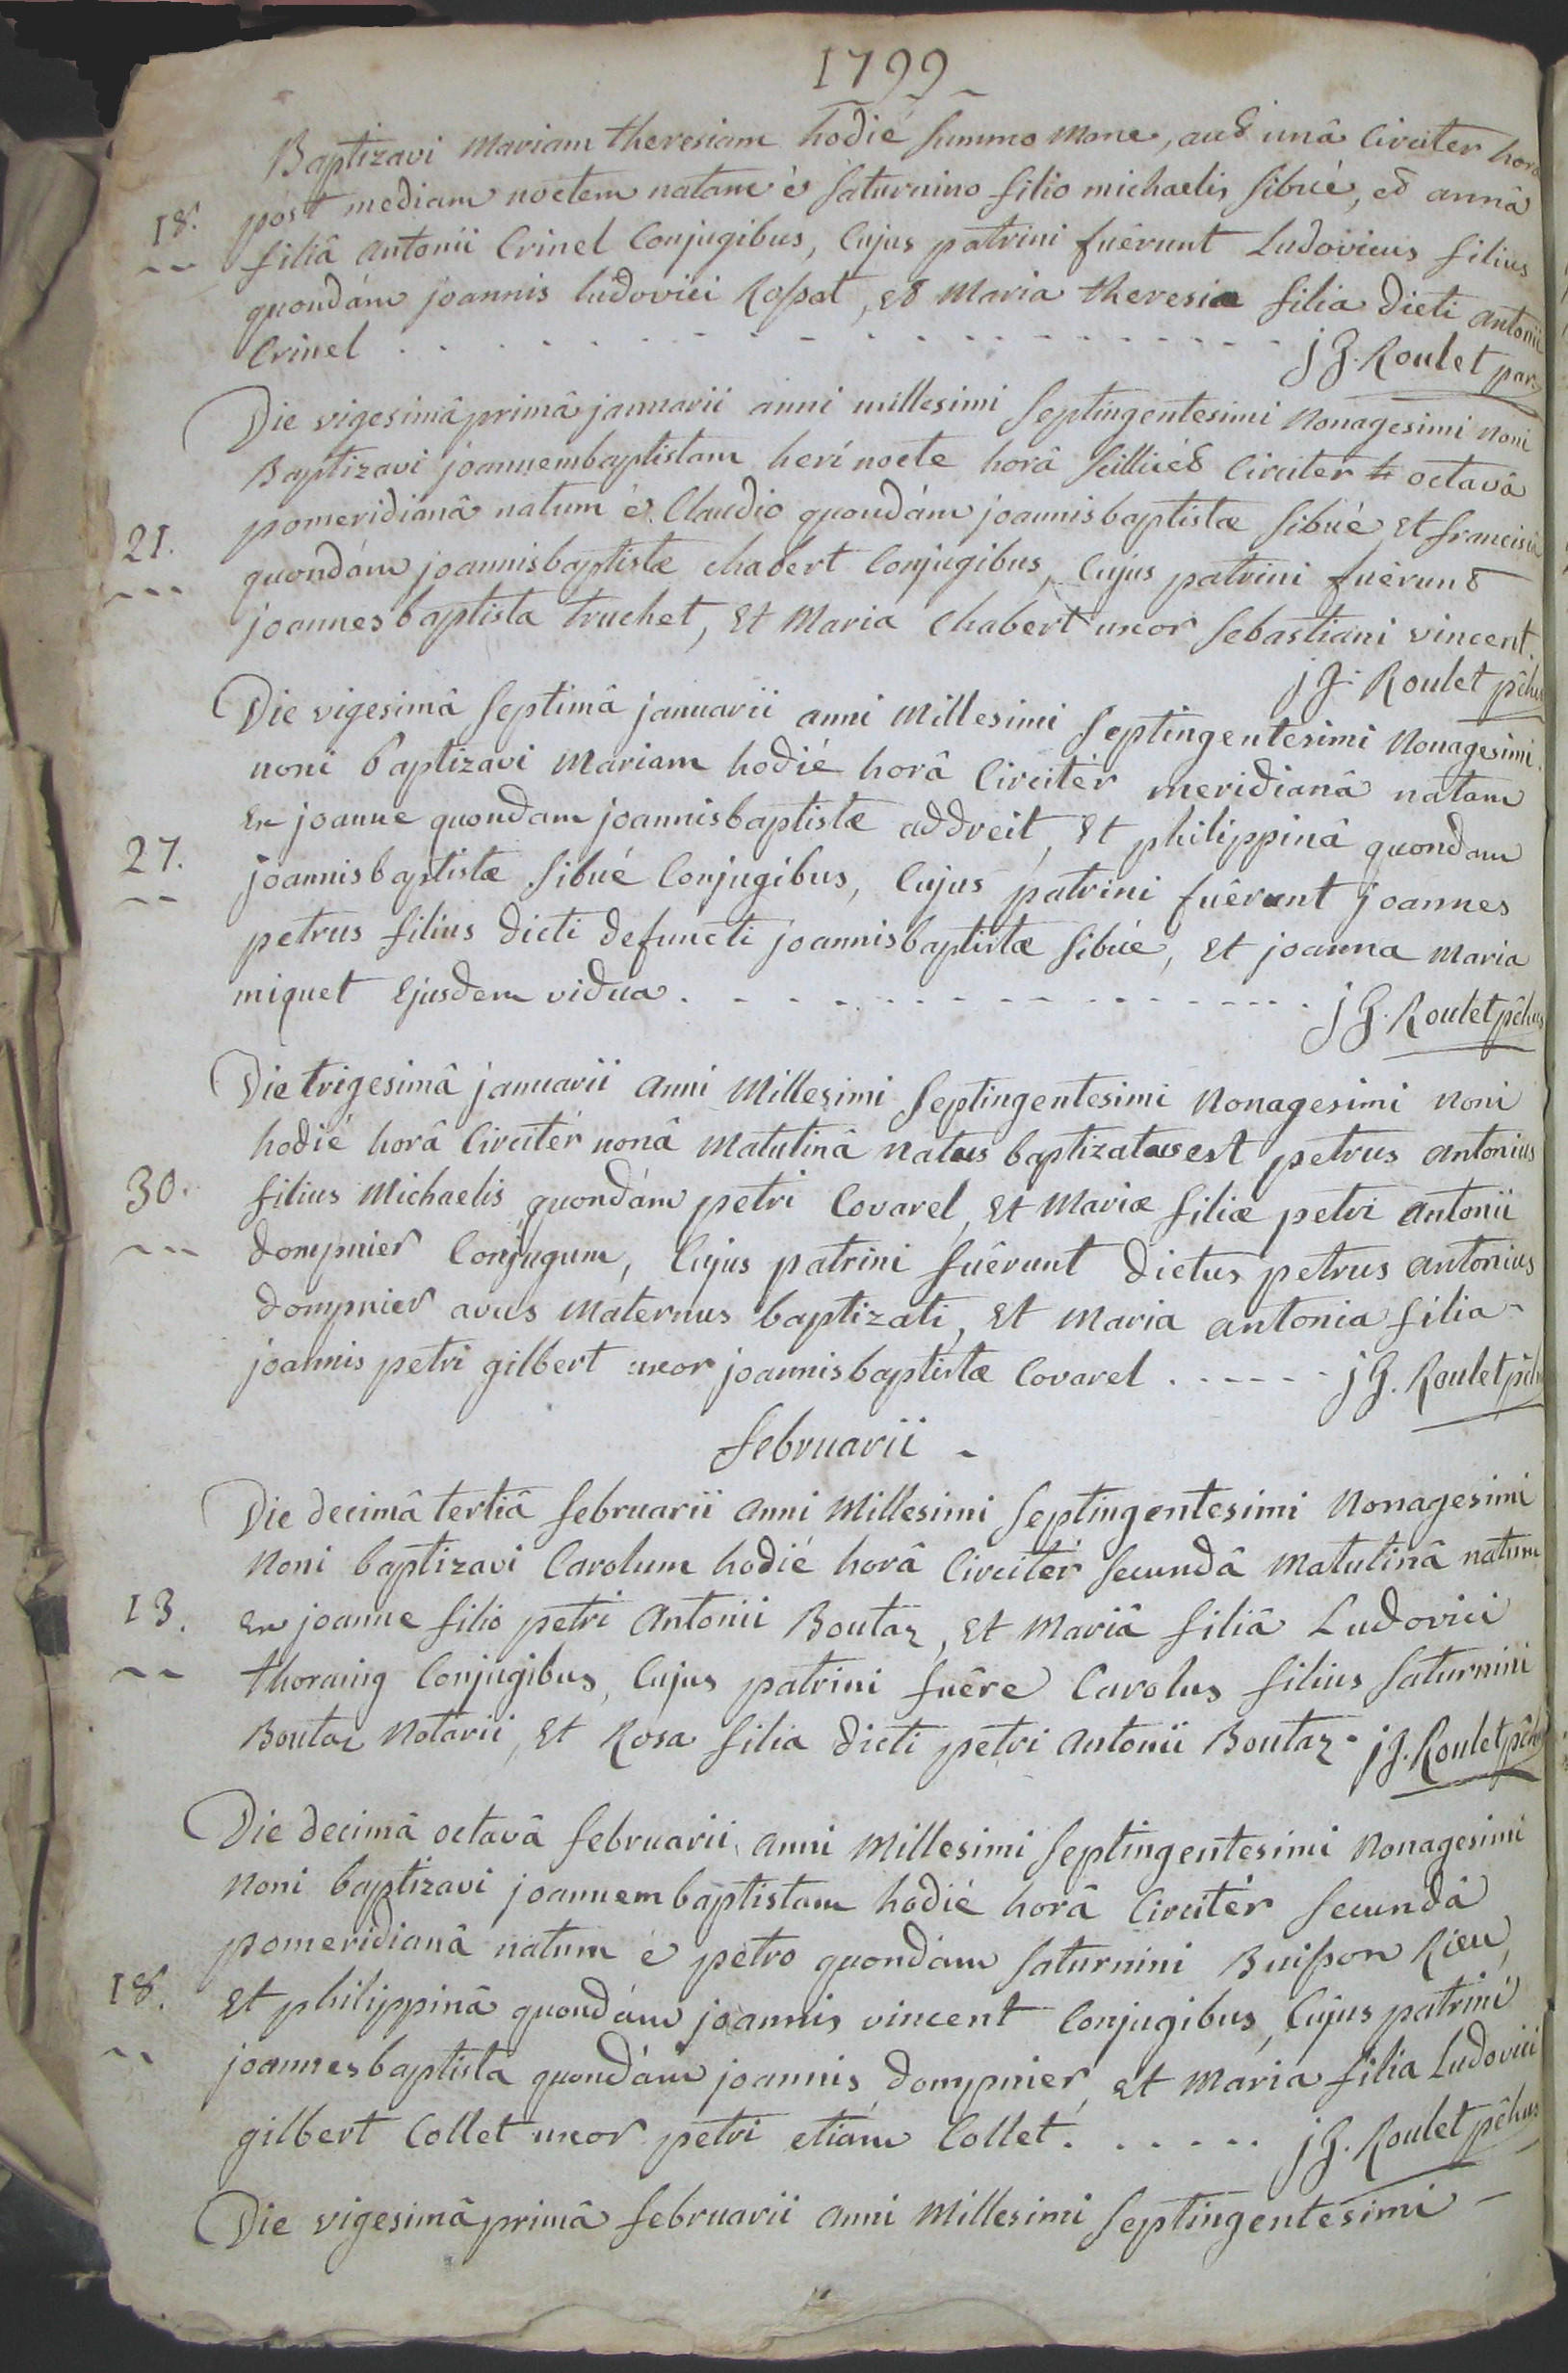 1799
Baptizavi Mariam theresiam hodié summo mane, aut unâ Circiter horâ
18. post mediam noctem natam è Saturnino filio michaelis Sibué, et annâ
filiâ antonii Crinel Conjugibus, Cujus patrini fuêrunt Ludovicus filius
quondám joannis ludovici Rossat, et Maria theresia filia dicti antonii
Crinel . . . . . . . . . . . . . . . j G. Roulet par
Die vigesimâ primâ januarii anni millesimi Septingentesimi Nonagesimi Noni
Baptizavi joannembaptistam herí nocte horâ Scilicét Circiter octavâ
21. pomeridianâ natum è Claudio quondám joannisbaptistæ Sibué, et francisca
quondám joannisbaptistæ Chabert Conjugibus, Cujus patrini fuêrunt
joannesbaptista truchet, Et Maria Chabert uxor Sebastiani vincent.
j G. Roulet pêhus
Die vigesimâ Septimâ januarii anni Millesimi Septingentesimi Nonagesimi
noni baptizavi Mariam hodié horâ Circitér meridianâ natam
Ex joanne quondam joannisbaptistæ addreit, Et philippinâ quondam
27. joannisbaptistæ Sibué Conjugibus, Cujus patrini fuêrunt joannes
petrus filius dicti defuncti joannisbaptistæ Sibué, Et joanna Maria
miquet Ejusdem vidua . - - - - - - - - - - - - - . j G. Roulet pêhus
Die trigesimâ januarii anni Millesimi Septingentesimi Nonagesimi Noni
hodié horâ Circitér nonâ Matutinâ natus baptizatus est petrus antonius
30. filius Michaelis quondám petri Covarel, Et Mariæ filiæ petri antonii
dompnier Conjugum, Cujus patrini fuêrunt dictus petrus antonius
dompnier avus Maternus baptizati, Et Maria antonia filia
joannis petri gilbert uxor joannisbaptistæ Covarel . - - - - - j G. Roulet pêhus
februarii -
Die decimâ tertiâ februarii anni Millesimi Septingentesimi Nonagesimi
Noni baptizavi Carolum hodié horâ Circitér Secundâ Matutinâ natum
13. Ex joanne filio petri Antonii Boutaz, Et Mariâ filiâ Ludovici
thoraing Conjugibus, Cujus patrini fuêre Carolus filius Saturnini
Boutaz Notarii, Et Rosa filia dicti petri antonii Boutaz - j G. Roulet pêhus
Die decimâ octavâ februarii anni Millesimi Septingentesimi Nonagesimi
Noni baptizavi joannembaptistam hodié horâ Circitér Secundâ
pomeridianâ natum è petro quondám Saturnini Buisson Rieu,
18. Et philippinâ quondám joannis vincent Conjugibus, Cujus patrini
joannesbaptista quondám joannis dompnier, Et Maria filia Ludovici
gilbert Collet uxor petri etiám Collet . . . . . . j G. Roulet pêhus
Die vigesimâ primâ februarii anni Millesimi Septingentesimi -